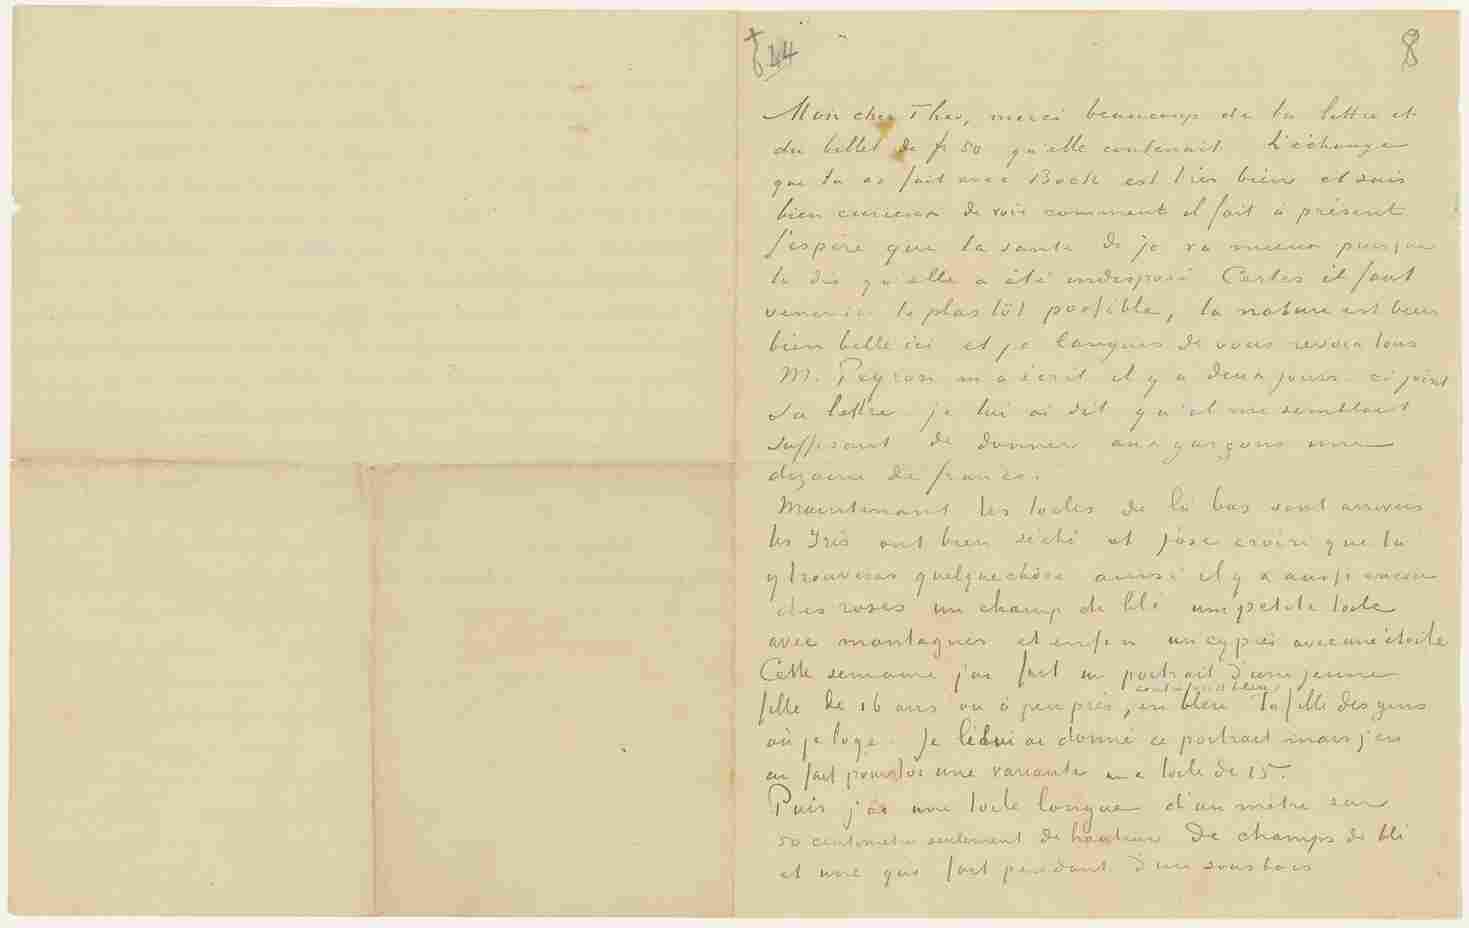 644
8
Mon cher Theo, merci beaucoup de ta lettre et
du billet de fr 50 qu'elle contenait. L'échange
que tu as fait avec Bock est très bien et suis
bien curieux de voir comment il fait à présent
J'espère que la santé de Jo va mieux puisque
tu dis qu'elle a été indisposé Certes il faut
venir ici le plus tôt possible, la nature est bien
bien belle ici et je languis de vous revoir tous
M. Peyron m'a écrit il y a deux jours ci joint
sa lettre je lui ai dit qu'il me semblait
suffisant de donner aux garçons une
dizaine de francs.
Maintenant les toiles de là bas sont arrivées
les Iris ont bien séché et j'ose croire que tu
y trouveras quelquechose ainsi il y a aussi encore
des roses un champ de blé une petite toile
avec montagnes et enfin un cyprès avec une étoile
Cette semaine j'ai fait un portrait d'une jeune
fille de 16 ans ou à peu près, en bleu contre fond bleu la fille des gens
où je loge. Je lui ai donné ce portrait mais j'en
ai fait pour toi une variante une toile de 15.
Puis j'ai une toile longue d'un mètre sur
50 centimètre seulement de hauteur de champs de blé
et une qui fait pendant d'un sousbois